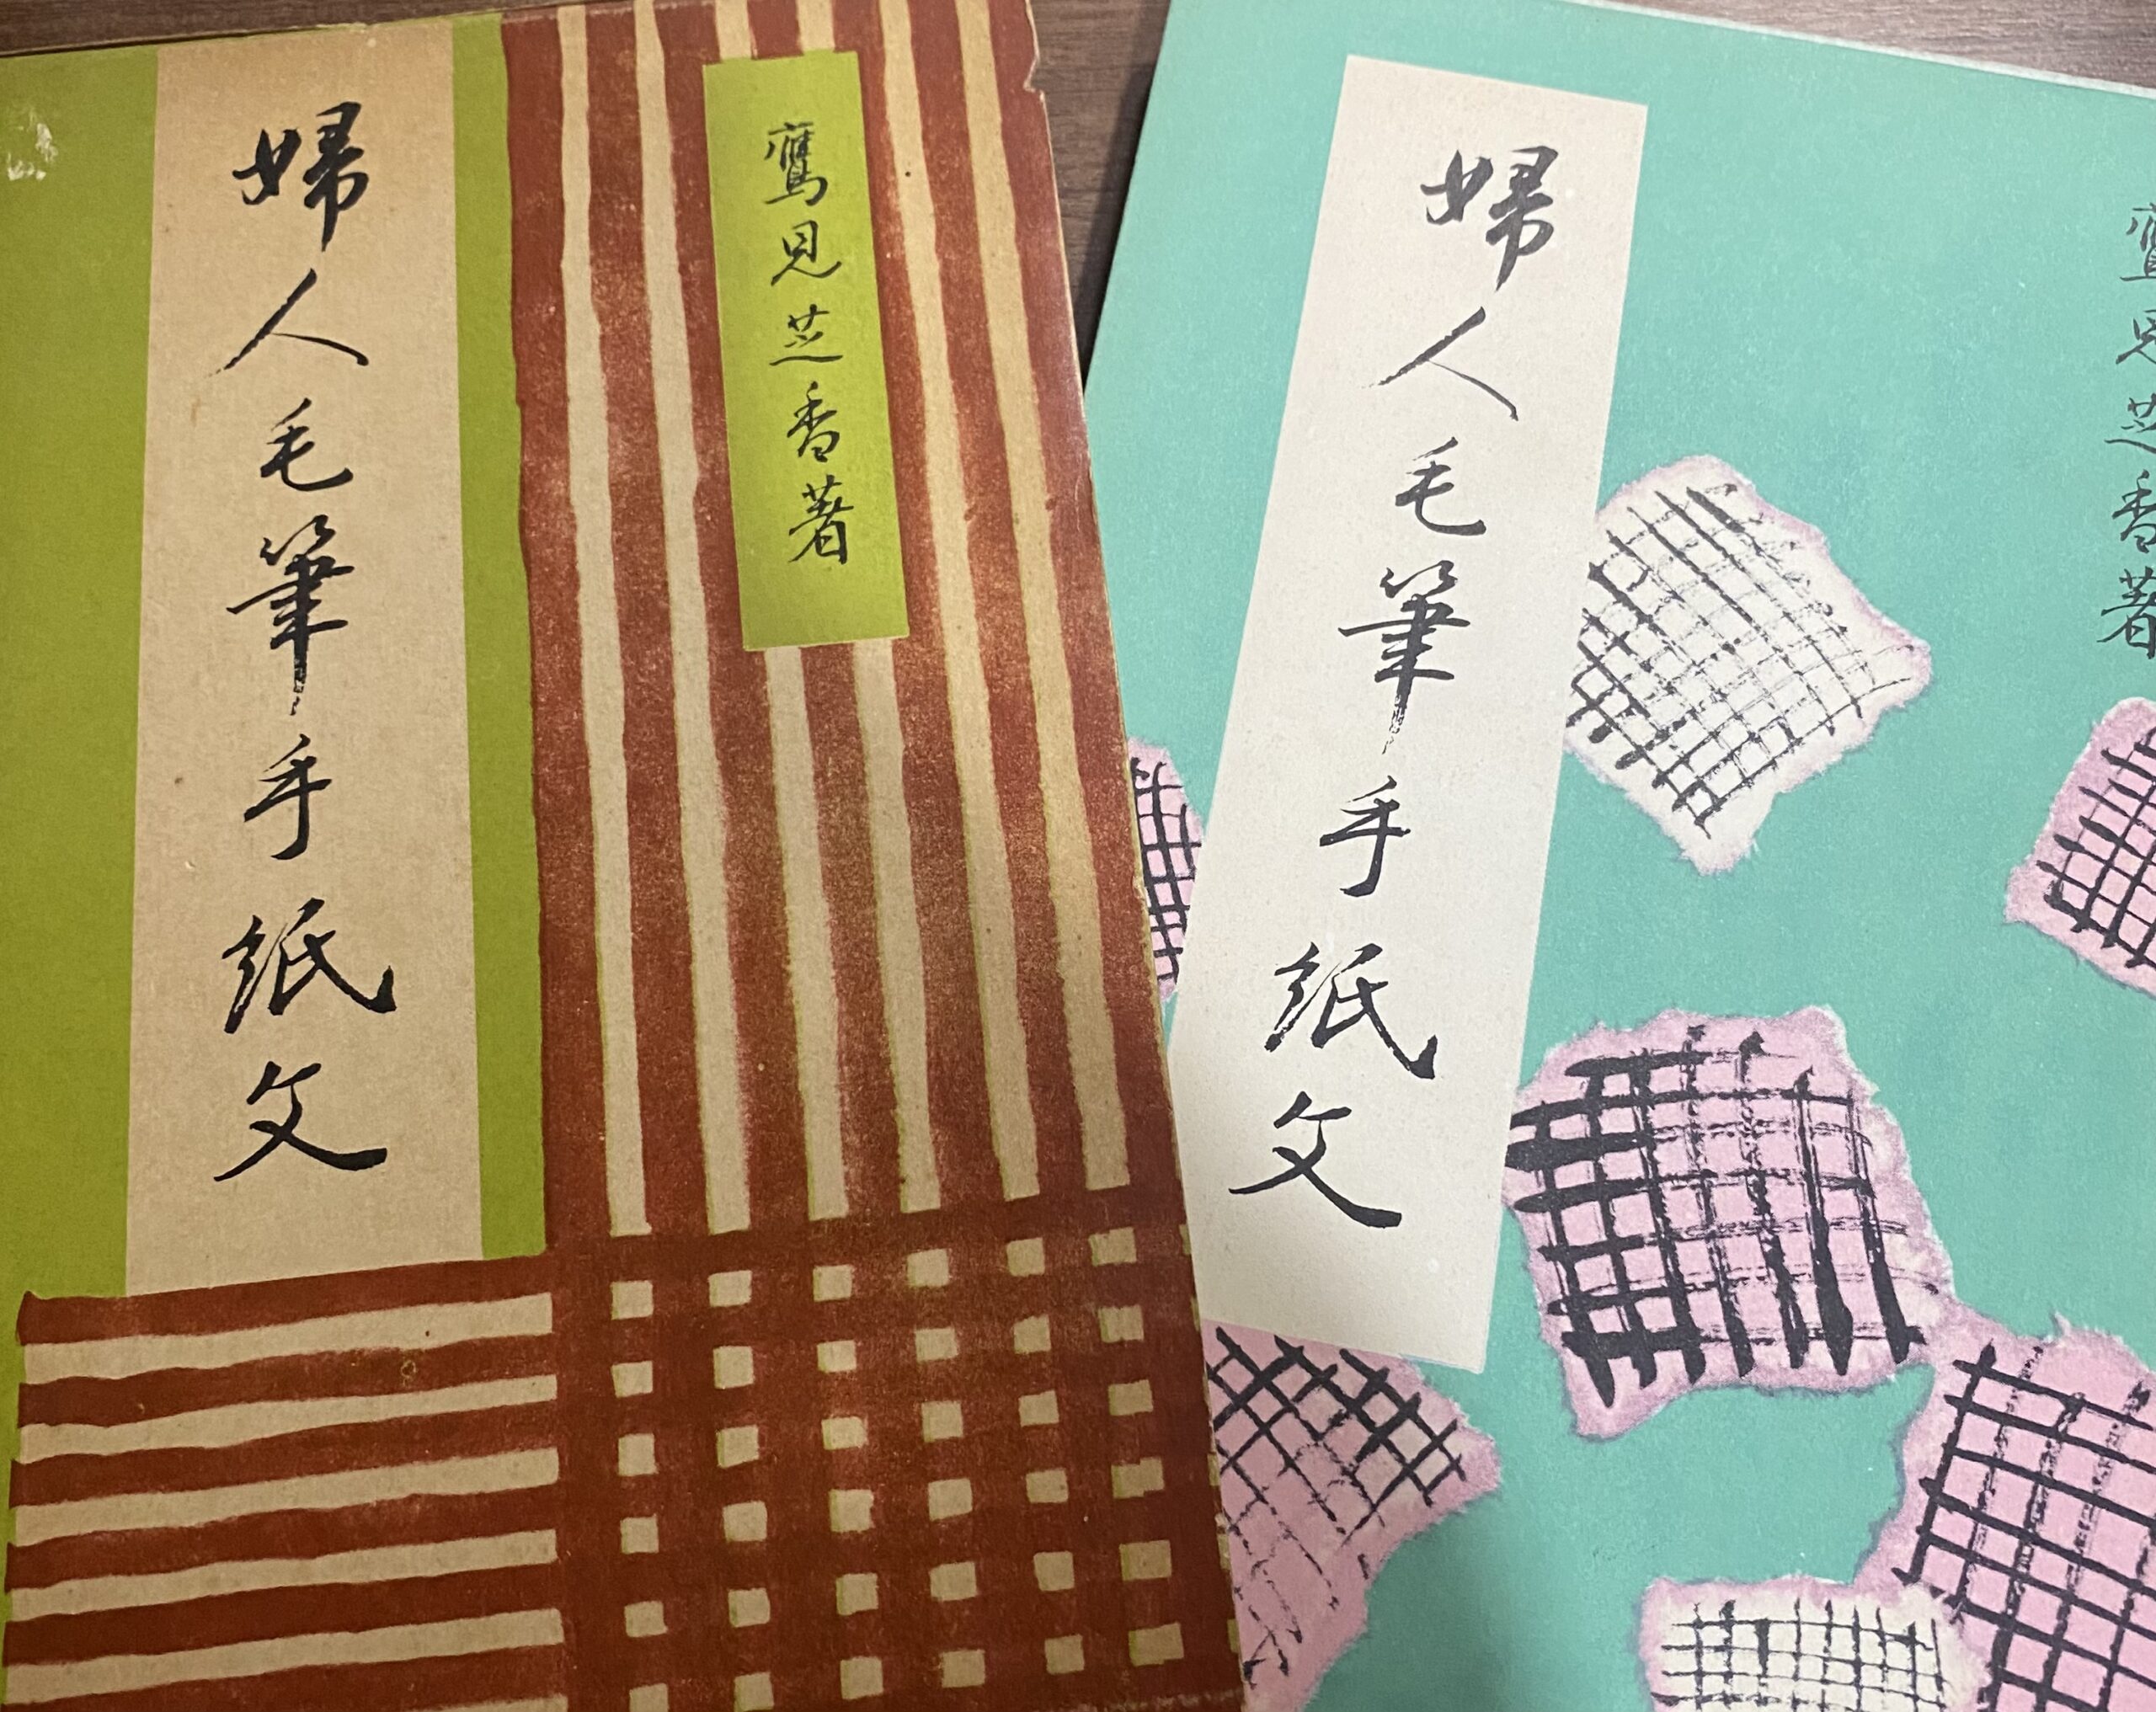 婦人毛筆手紙文
鷹見芝香著
婦人毛筆手紙文
鷹見芝香著